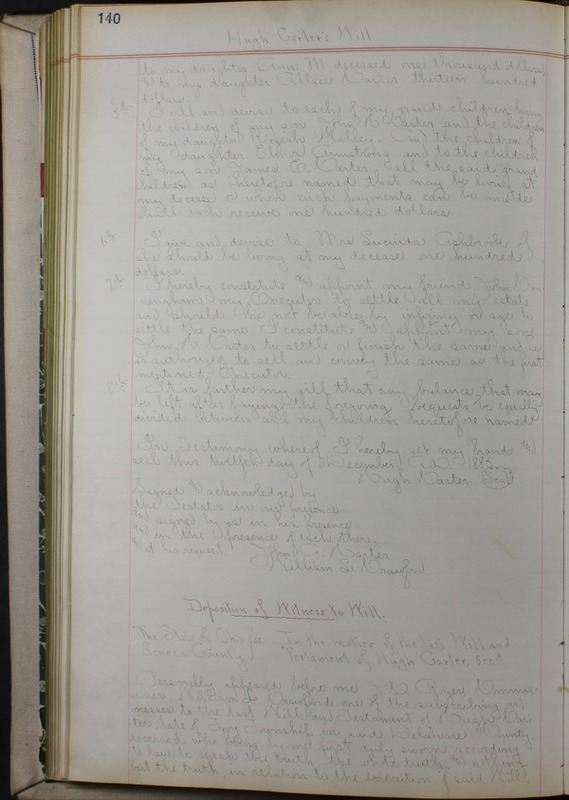 140
Hugh Carter's Will
to my daughter Anne M deceased one thousand dollars
& to my daughter Carter thirteen hundred
dollars.
5th I will and devise to each of my grand children being
the children of my son John Carter and the children
of my daughter And the children of
my daughter Armstrong and to the children
of my son James E. Carter all the said grand
children as heretofore named that may be living at
my decease or when such payments can be made
shall each receive one hundred dollars.
6th I give and devise to Mrs Lucinda Ashbrook if
she should be living at my decease one hundred
dollars.
7th I hereby constitute and appoint my friend John
my Executor to settle all my estate
and should he not be able by infirmy or age to
settle the same I constitute and appoint my son
John Carter to settle or finish the same and he
is authorized to sell an convey the same as the first
mentioned Executor
8th It is further my will that any balance that may
be left after paying the foregoing bequests be equally
divided between all my children heretofore named
In Testimony whereof I hereby set my hand and
seal this twelfth day of December A.D. 188
Hugh Carter Seal
Signed & acknowledged by
the Testator in our presence
and signed by us in his presence
and in the presence of each other.
& at his request John Carter
William S. Crawford
Deposition of Witness to Will.
The State of Ohio In the matter of the last Will and
Seneca County Testament of Hugh Carter, Dec'd
Personally appeared before me
William S. Crawford one of the subscribing wit
nesses to the last Will and Testament of Hugh Car
ter late of Township in said Delaware County
deceased, who being by me first duly sworn according
to law, to speak the truth, the whole truth and nothing
but the truth, in relation to the execution of said Will,